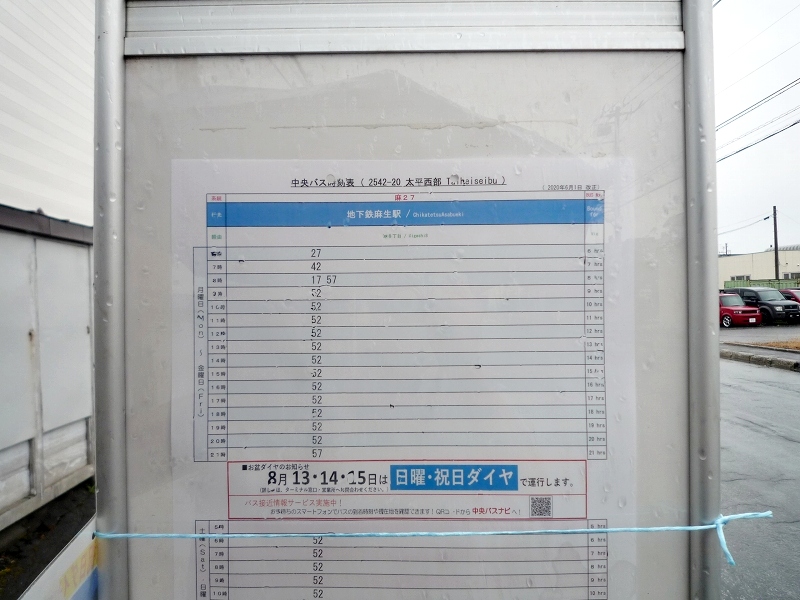 中央バス時刻表 ( 2542-20 太平西部 Taiheiseibu )
( 2020年6月1日 改正)
麻27
行先 地下鉄麻生駅 / ChikatetsuAsabueki
27
7時 42 7 hrs
8時 17 57 8 hrs
9時 52 9 hrs
10時 52 10 hrs
11時 52 11 hrs
12時 52 12 hrs
13時 52 13 hrs
14時 52 14 hrs
15時 52 15 hrs
16時 52 16 hrs
17時 52 17 hrs
18時 52 18 hrs
19時 52 19 hrs
20時 52 20 hrs
21時 57 21 hrs
月曜日(Mon) ~ 金曜日(Fri)
■お盆ダイヤのお知らせ
8月13・14・15日は 日曜・祝日ダイヤ で運行します。
(詳しくは、ターミナル窓口・営業所へお問合わせください。)
バス接近情報サービス実施中!
お手持ちのスマートフォンでバスの到着時刻や現在地を確認できます!QRコードから 中央バスナビ へ!
5時 5 hrs
6時 52 6 hrs
7時 52 7 hrs
8時 52 8 hrs
9時 52 9 hrs
10時 52 10 hrs
土曜(Sat) 日曜